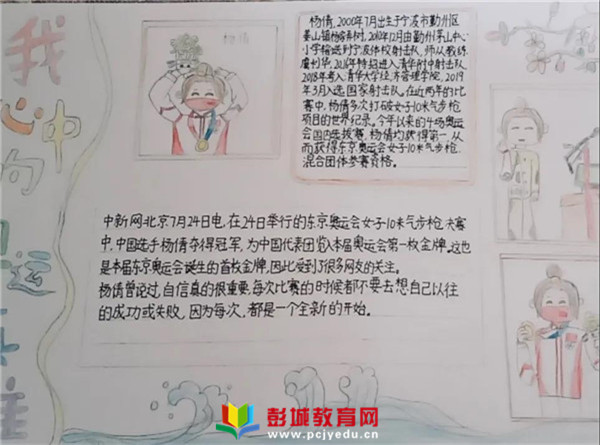 我心中
杨倩
杨倩，2000年7月出生于宁波市鄞州区
姜山镇杨家弄村。2010年12月由鄞州茅山中心
小学输送到宁波体校射击队，师从教练
虞利华，2016年特招进入清华附中射击队，
2018年考入清华大学经济管理学院，2019
年3月入选国家射击队。在近两年的比
赛中，杨倩多次打破女子10米气步枪
项目的世界纪录。今年以来的4场奥运
会国内选拔赛，杨倩均获得第一，从
而获得东京奥运会女子10米气步枪
混合团体参赛资格。
中新网北京7月24日电，在24日举行的东京奥运会女子10米气步枪决赛
中，中国选手杨倩夺得冠军，为中国代表团收入本届奥运会第一枚金牌。这也
是本届东京奥运会诞生的首枚金牌，因此受到了很多网友的关注。
杨倩曾说过，自信真的很重要，每次比赛的时候都不要去想自己以往
的成功或失败，因为每次，都是一个全新的开始。
彭城教育网
www.pcjyedu.cn